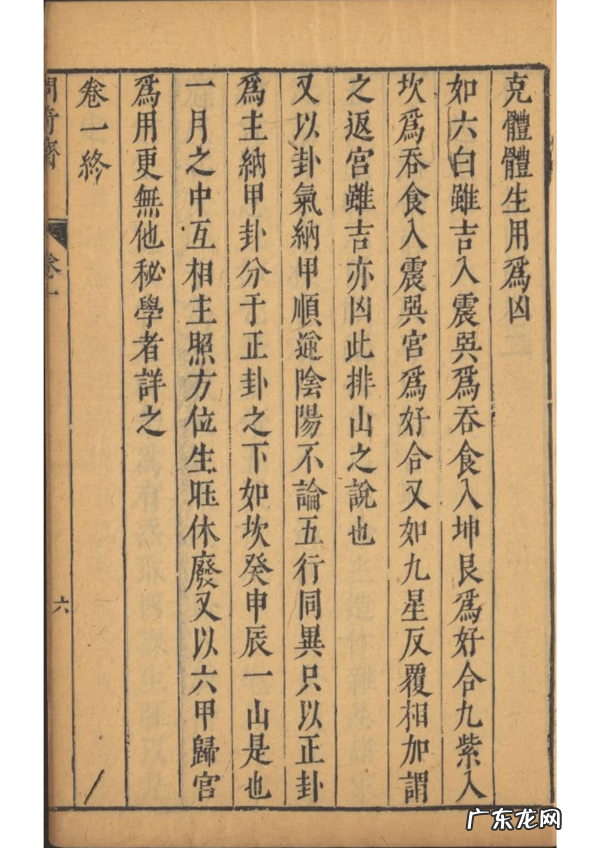 克體體生用爲凶
如六白雖吉入震巽爲吞食入坤艮爲好合九紫入
坎爲吞食入震巽宮爲好合又如九星反覆相加謂
之返宮雖吉亦凶此排山之說也
又以卦氣納甲順逆陰陽不論五行同異只以正卦
爲主納甲卦分于正卦之下如坎癸申辰一山是也
一月之中互相主照方位生旺休廢又以六甲歸宮
爲用更無他秘學者詳之
卷一終
卷一
六
广东龙网